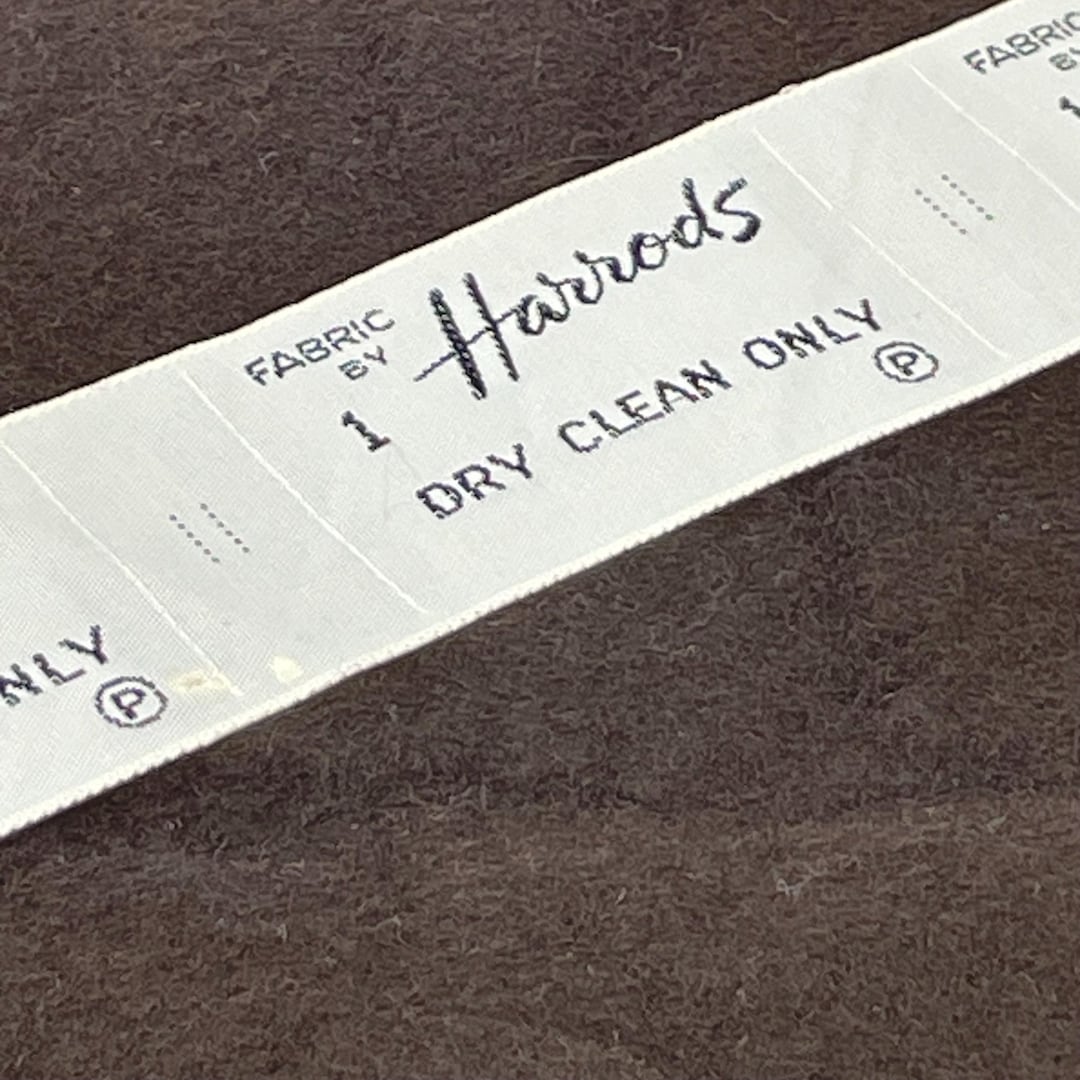 FABRIC
BY
Harrods
1
DRY CLEAN ONLY
P
NLY
P
FABRIC
BY
1